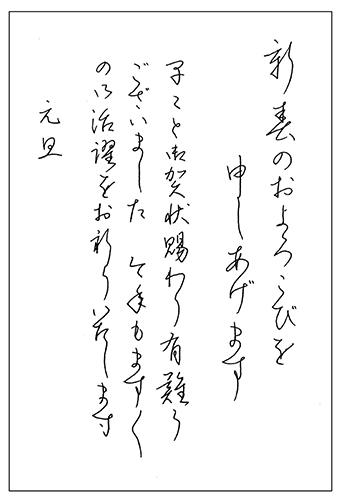 新春のおよろこびを
申しあげます
早々と御賀状賜わり有難う
ございました 今年もますく
の御活躍をお祈り致します
元旦